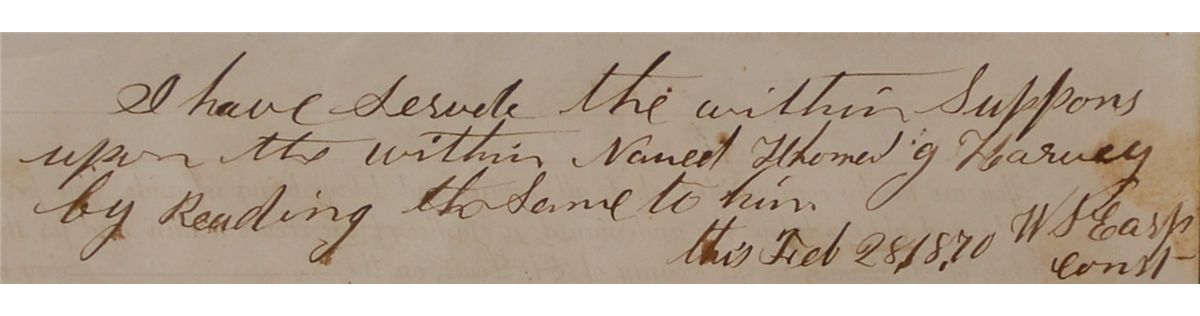 I have Servde the within Suppons
upon the within Named Thomes g Harvey
by Reading the Same to him
this Feb 28, 1870 W S Earp
Const